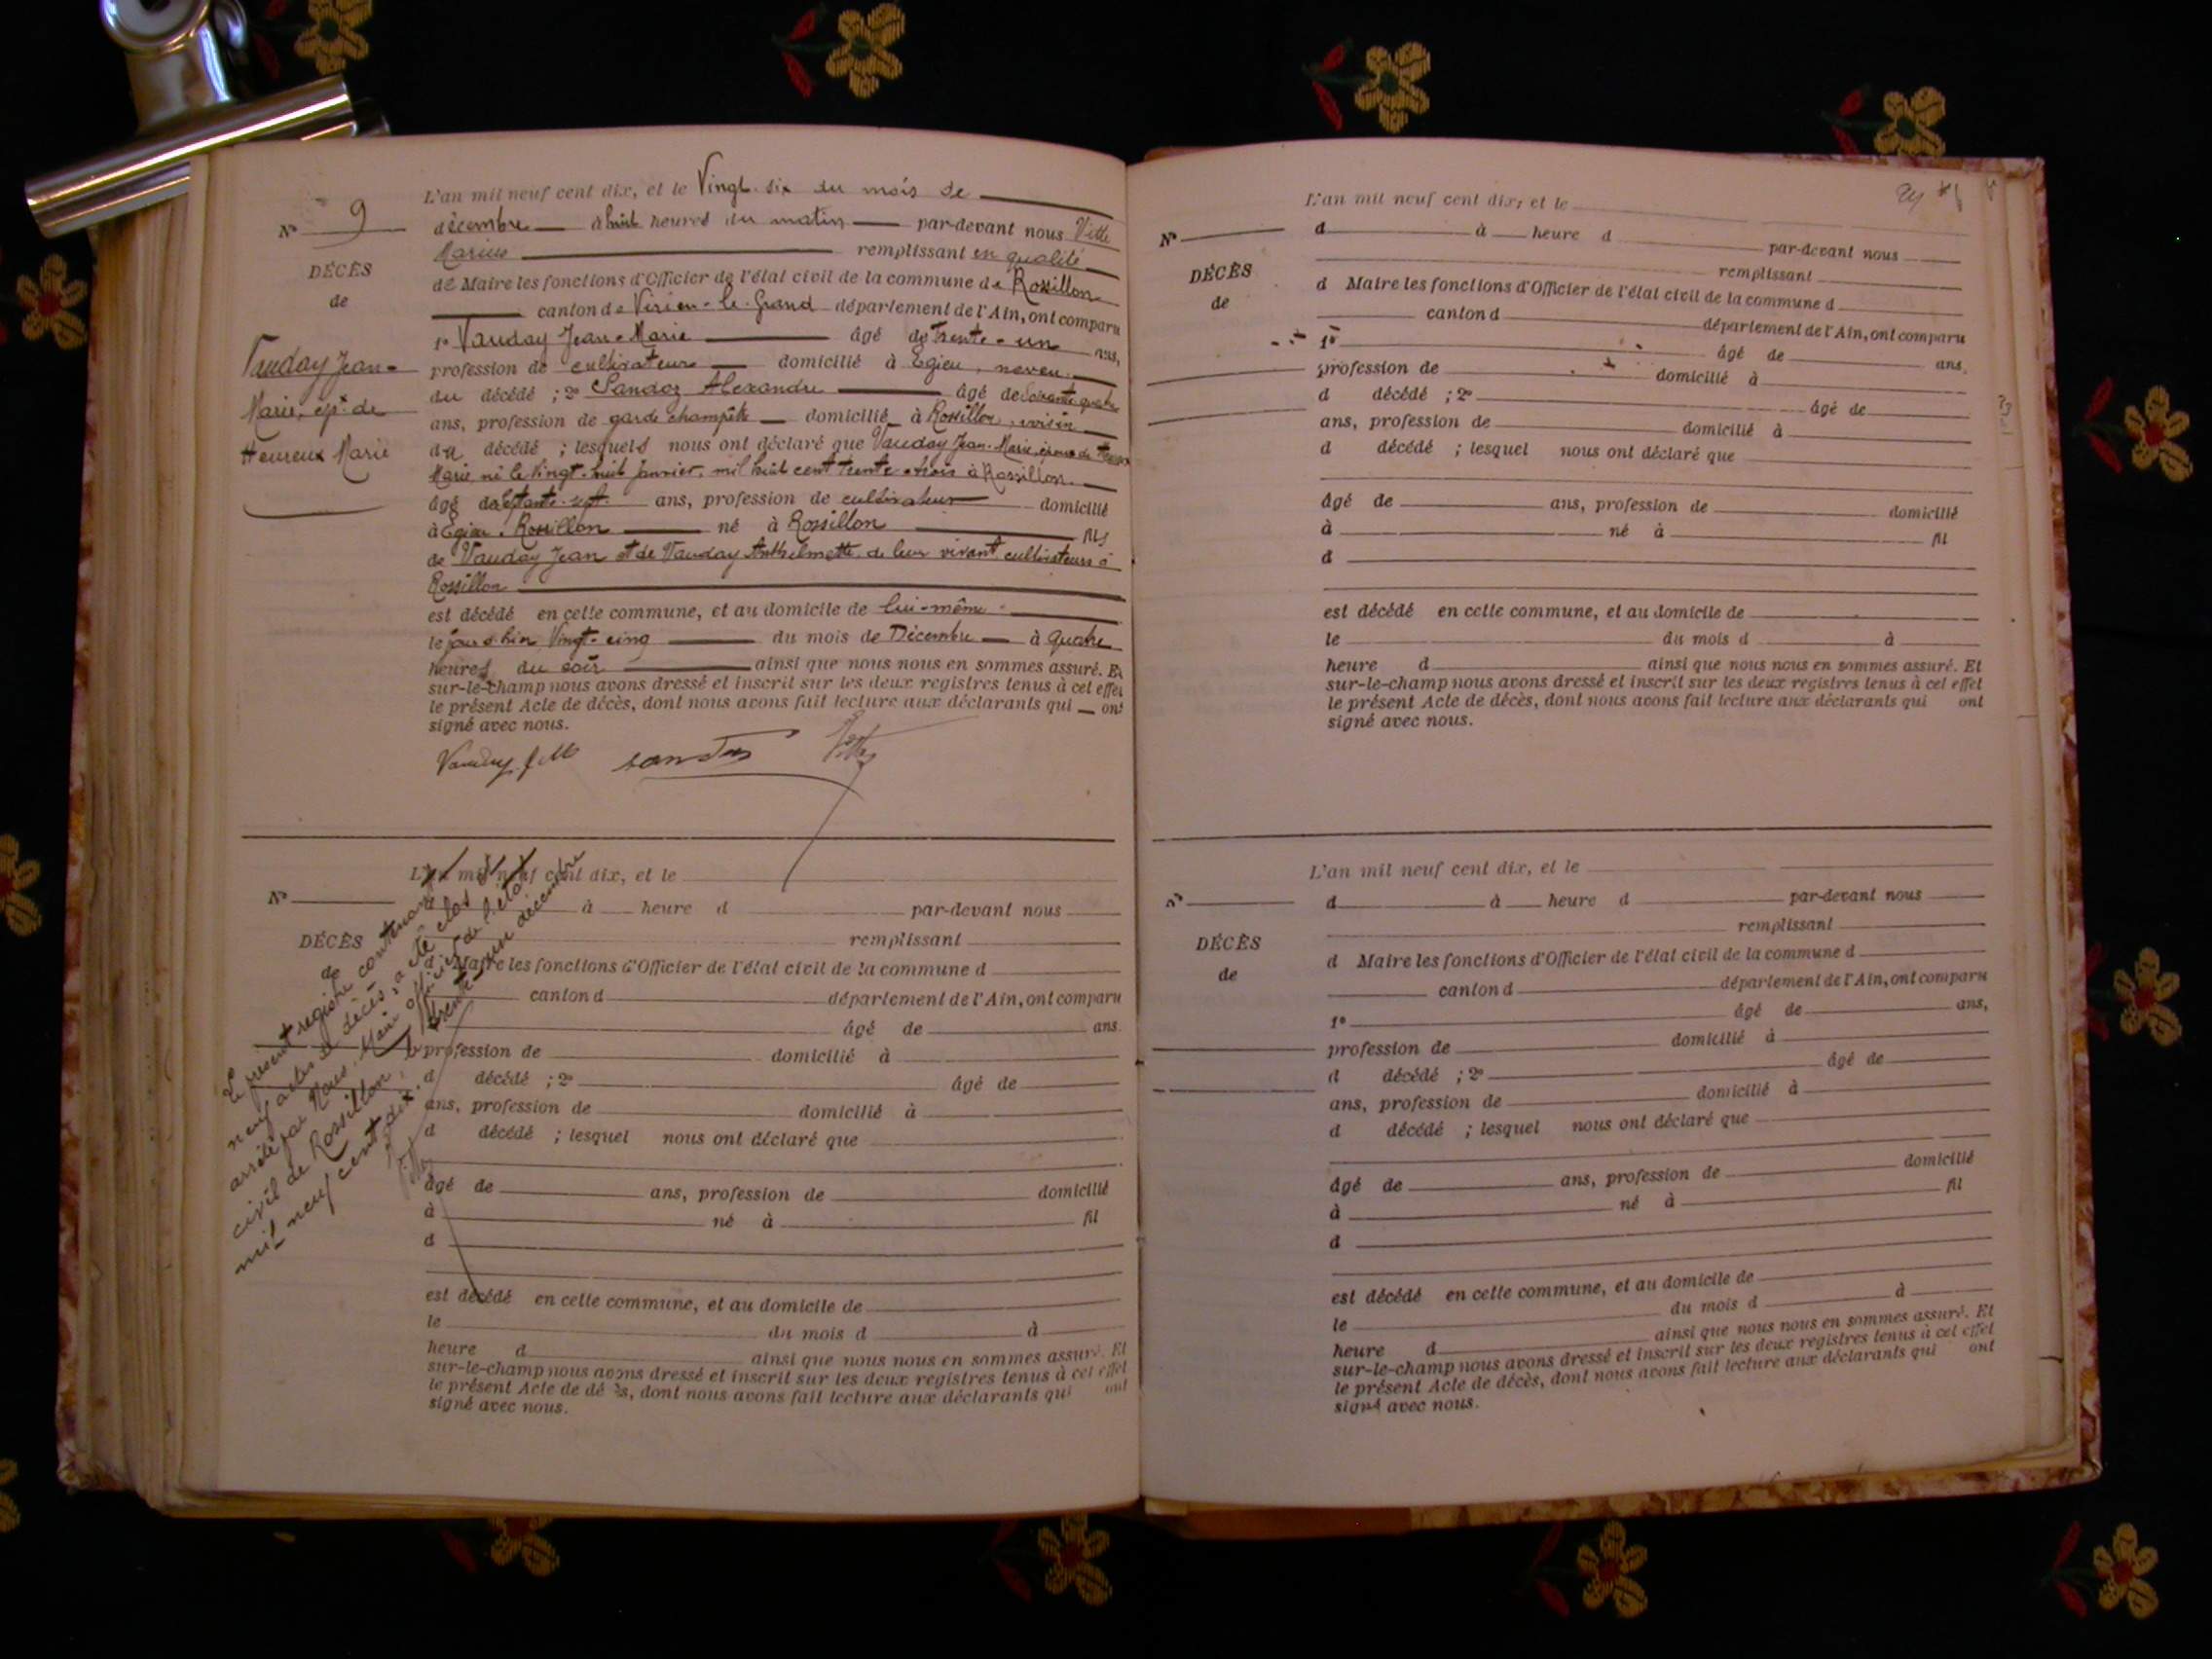 L'an mil neuf cent dix, et le Vingt-six du mois de
N° 9
décembre à huit heures du matin par-devant nous Vette
Marius remplissant en qualité
DÉCÈS
de Maire les fonctions d'Officier de l'état civil de la commune de Rossillon
de
canton de Virieu-le-Grand département de l'Ain, ont comparu
1° Vauday Jean-Marie âgé de trente-un ans,
Vauday Jean-
Marie, ép. de
Heureux Marie
profession de cultivateur domicilié à Egieu, neveu
du décédé ; 2° Sandoz Alexandre âgé de soixante quatre
ans, profession de garde champêtre domicilié à Rossillon, voisin
du décédé ; lesquels nous ont déclaré que Vauday Jean-Marie, époux de Heureux
Marie né le Vingt-huit Janvier, mil huit cent trente-trois à Rossillon.
âgé de septante-sept ans, profession de cultivateur domicilié
à Egieu, Rossillon né à Rossillon fils
de Vauday Jean et de Vauday Anthelmette, de leur vivant cultivateurs à
Rossillon
est décédé en cette commune, et au domicile de lui-même
le jour d'hier Vingt-cinq du mois de Décembre à quatre
heures du soir ainsi que nous nous en sommes assuré. Et
sur-le-champ nous avons dressé et inscrit sur les deux registres tenus à cet effet
le présent Acte de décès, dont nous avons fait lecture aux déclarants qui ont
signé avec nous.
Vauday J M sandoz Vette
L'an mil neuf cent dix, et le
N°
à heure d par-devant nous
DÉCÈS
remplissant
de
d Maire les fonctions d'Officier de l'état civil de la commune d
canton d département de l'Ain, ont comparu
âgé de ans.
profession de domicilié à
d décédé ; 2° âgé de
ans, profession de domicilié à
d décédé ; lesquel nous ont déclaré que
âgé de ans, profession de domicilié
à né à fil
d
est décédé en cette commune, et au domicile de
le du mois d à
heure d ainsi que nous nous en sommes assuré. Et
sur-le-champ nous avons dressé et inscrit sur les deux registres tenus à cet effet
le présent Acte de décès, dont nous avons fait lecture aux déclarants qui ont
signé avec nous.
Le présent registre contenant
neuf actes de décès, a été clos et
arrêté par Nous, Maire officier de l'état
civil de Rossillon, le trente-un décembre
mil neuf cent dix.
Vette
L'an mil neuf cent dix, et le
N°
d à heure d par-devant nous
remplissant
DÉCÈS
d Maire les fonctions d'Officier de l'état civil de la commune d
de
canton d département de l'Ain, ont comparu
1° âgé de ans,
profession de domicilié à
d décédé ; 2° âgé de
ans, profession de domicilié à
d décédé ; lesquel nous ont déclaré que
âgé de ans, profession de domicilié
à né à fil
d
est décédé en cette commune, et au domicile de
le du mois d à
heure d ainsi que nous nous en sommes assuré. Et
sur-le-champ nous avons dressé et inscrit sur les deux registres tenus à cet effet
le présent Acte de décès, dont nous avons fait lecture aux déclarants qui ont
signé avec nous.
L'an mil neuf cent dix, et le
N°
d à heure d par-devant nous
remplissant
DÉCÈS
d Maire les fonctions d'Officier de l'état civil de la commune d
de
canton d département de l'Ain, ont comparu
1° âgé de ans,
profession de domicilié à
d décédé ; 2° âgé de
ans, profession de domicilié à
d décédé ; lesquel nous ont déclaré que
âgé de ans, profession de domicilié
à né à fil
d
est décédé en cette commune, et au domicile de
le du mois d à
heure d ainsi que nous nous en sommes assuré. Et
sur-le-champ nous avons dressé et inscrit sur les deux registres tenus à cet effet
le présent Acte de décès, dont nous avons fait lecture aux déclarants qui ont
signé avec nous.